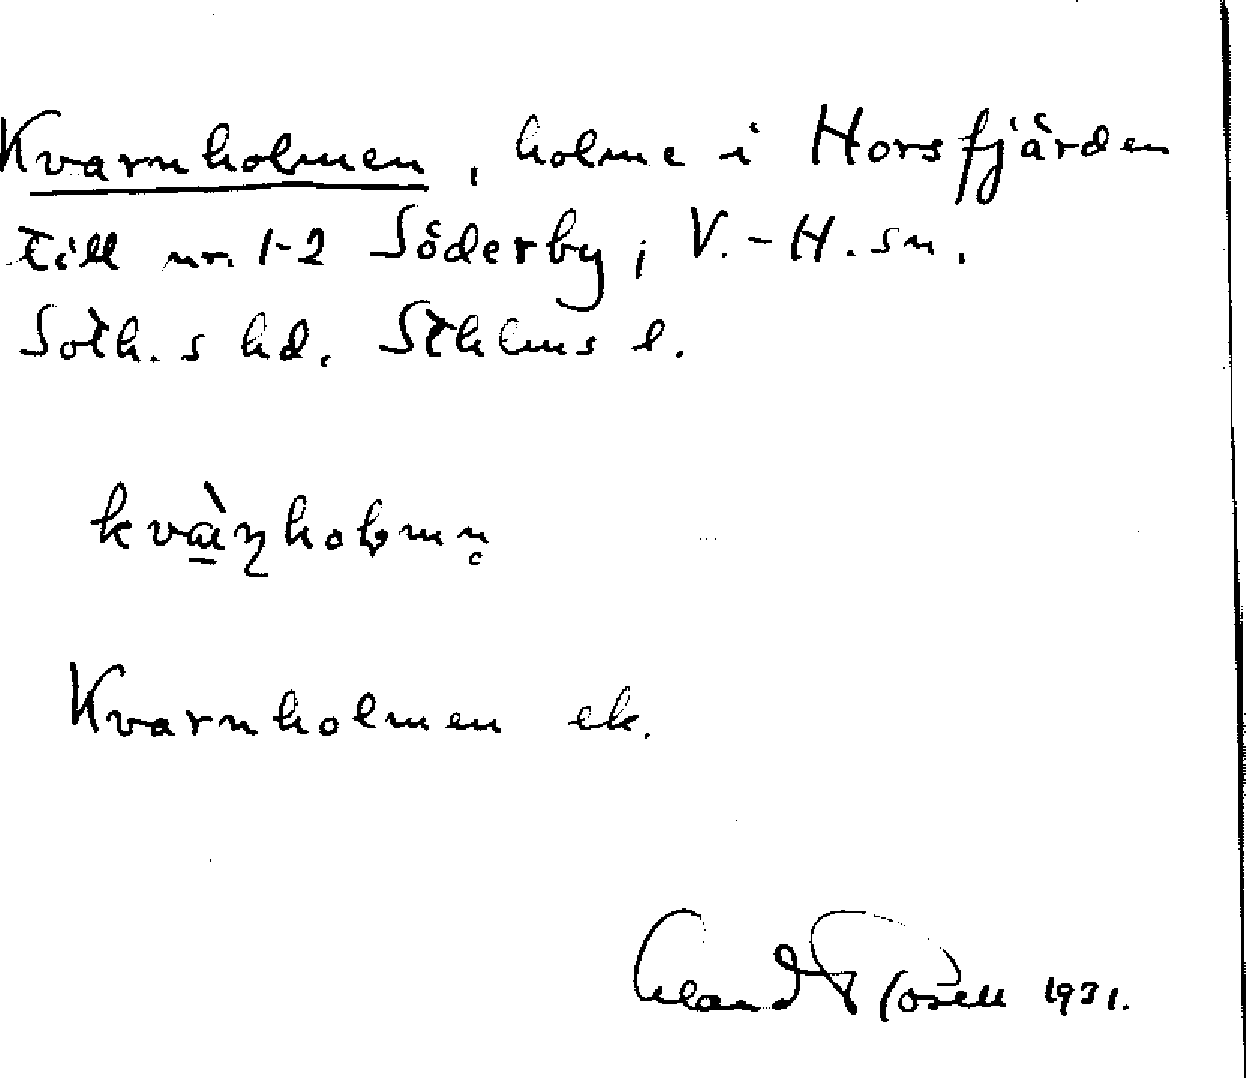 Kvarnholmen, holme i Horsfjärden
till nr. 1-2 Söderby, V.-H. sn.
Soth. s hd. Sthlms l.
Kvarnholmen ek.
Erland Rosell 1931.